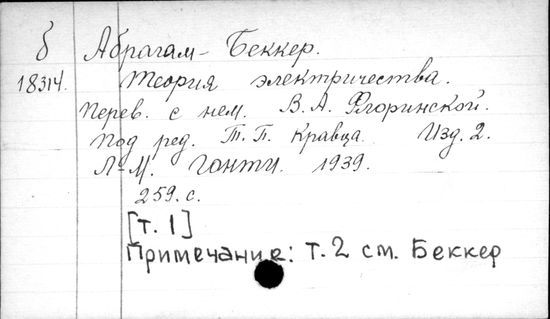 б Абрагам-Беккер.
18314. Теория электричества.
Перев. с нем. В.А. Флоринской.
Под ред. Т.П. Кравца. Изд. 2.
Л-М. ГОНТИ. 1939.
259. с.
[т. 1]
Примечание: т. 2 см. Беккер